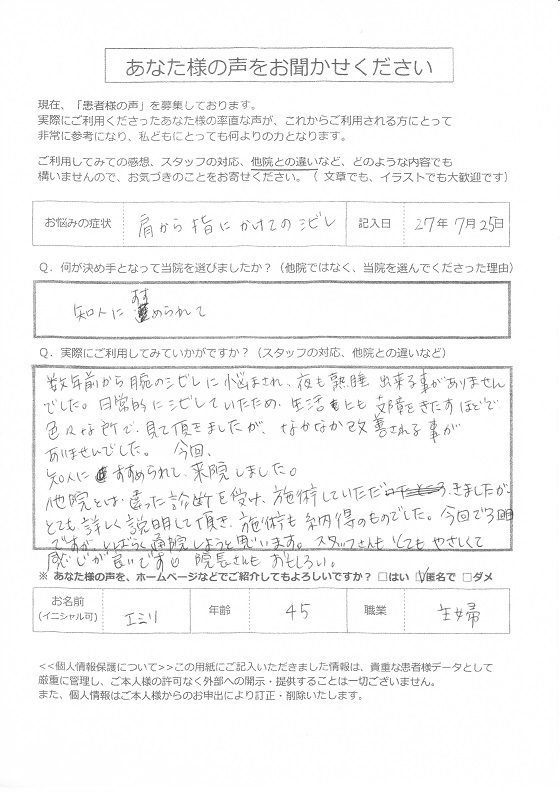 あなた様の声をお聞かせください
現在、「患者様の声」を募集しております。
実際にご利用くださったあなた様の率直な声が、これからご利用される方にとって
非常に参考になり、私どもにとっても何よりの力となります。
ご利用してみての感想、スタッフの対応、他院との違いなど、どのような内容でも
構いませんので、お気づきのことをお寄せください。（ 文章でも、イラストでも大歓迎です）
お悩みの症状 肩から指にかけてのシビレ 記入日 27年 7月 25日
Q．何が決め手となって当院を選びましたか？（他院ではなく、当院を選んでくださった理由）
知人にすすめられて
Q．実際にご利用してみていかがですか？（スタッフの対応、他院との違いなど）
数年前から腕のシビレに悩まされ、夜も熟睡出来る事がありません
でした。日常的にシビレていたため、生活にも支障をきたすほどで
色々な所で、見て頂きましたが、なかなか改善される事が
ありませんでした。 今回、
知人にすすめられて、来院しました。
他院とは違った診断を受け、施術していただきましたが、
とても詳しく説明して頂き、施術も納得のものでした。今回で3回目
ですが、しばらく通院しようと思います。スタッフさんもとてもやさしくて
感じが良いです。院長さんもおもしろい。
※ あなた様の声を、ホームページなどでご紹介してもよろしいですか？ □はい ☑匿名で □ダメ
お名前
(イニシャル可) エミリ 年齢 45 職業 主婦
<<個人情報保護について>>この用紙にご記入いただきました情報は、貴重な患者様データとして
厳重に管理し、ご本人様の許可なく外部への開示・提供することは一切ございません。
また、個人情報はご本人様からのお申出により訂正・削除いたします。